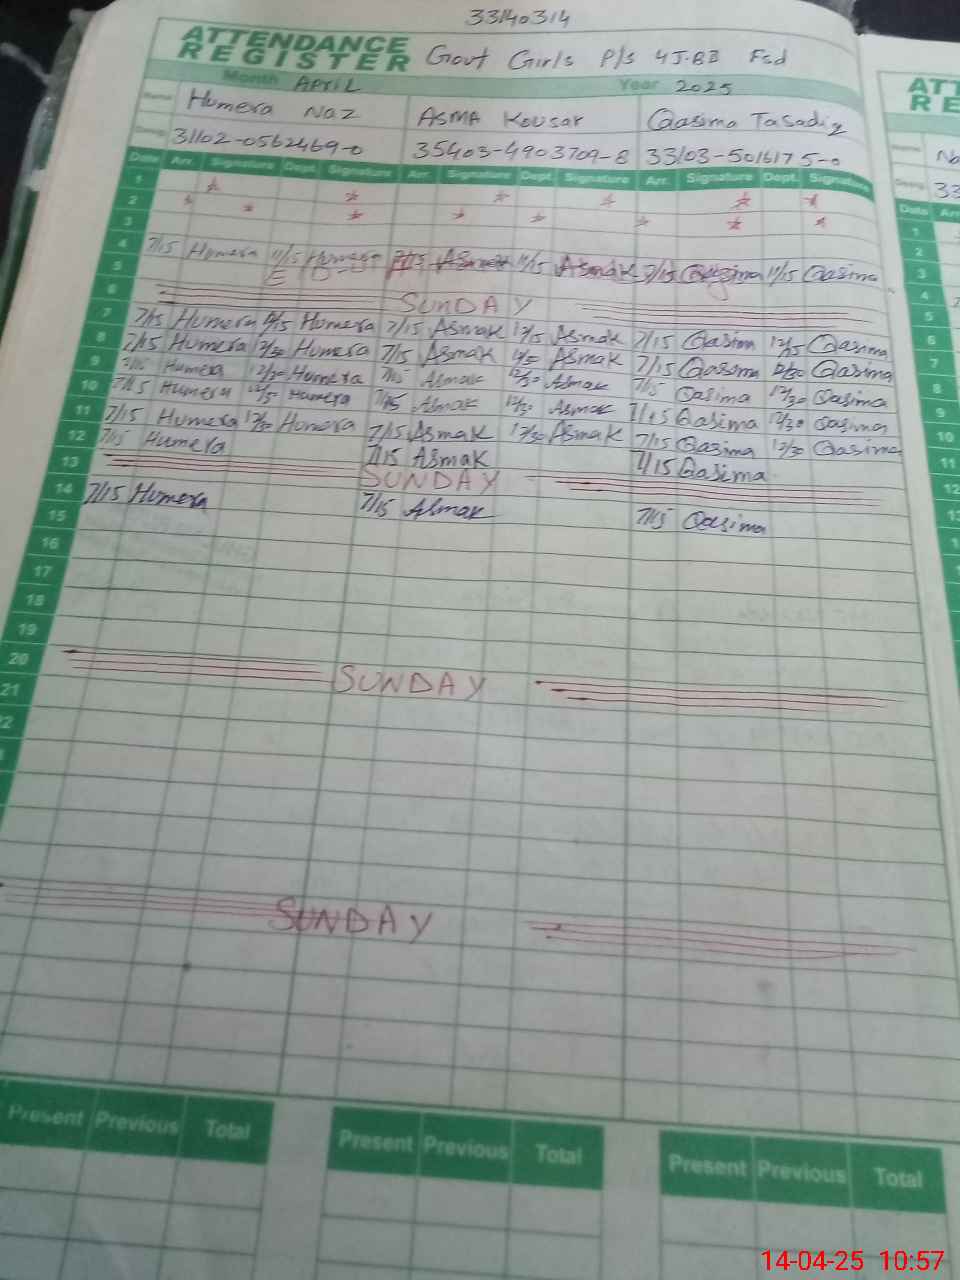 33140314
ATTENDANCE REGISTER Govt Girls P/S 4J.BB Fsd
Month April Year 2025
Name Humera Naz ASMA Kousar Qasima Tasadiq
31102-0562469-0 35403-4903709-8 33103-5016175-0
Date Arr. Signature Dept. Signature Arr. Signature Dept. Signature Arr. Signature Dept. Signature
1
2
3
4 7/15 Humera 11/15 Humera 7/15 Asmak 11/15 Asmak 7/15 Qasima 11/15 Qasima
5
6 SUNDAY
7 7/15 Humera 12/15 Humera 7/15 Asmak 12/15 Asmak 7/15 Qasima 12/15 Qasima
8 7/15 Humera 12/30 Humera 7/15 Asmak Asmak 7/15 Qasima 12/30 Qasima
9 7/15 Humera 12/30 Humera 7/15 Asmak 12/30 Asmak 7/15 Qasima 12/30 Qasima
10 7/15 Humera Humera 7/15 Asmak 12/30 Asmak 7/15 Qasima 12/30 Qasima
11 7/15 Humera 12/30 Humera 7/15 Asmak 12/30 Asmak 7/15 Qasima 12/30 Qasima
12 7/15 Humera 7/15 Asmak 7/15 Qasima
13 SUNDAY
14 7/15 Humera 7/15 Asmak 7/15 Qasima
15
16
17
18
19
20 SUNDAY
21
SUNDAY
Present Previous Total Present Previous Total Present Previous Total
14-04-25 10:57